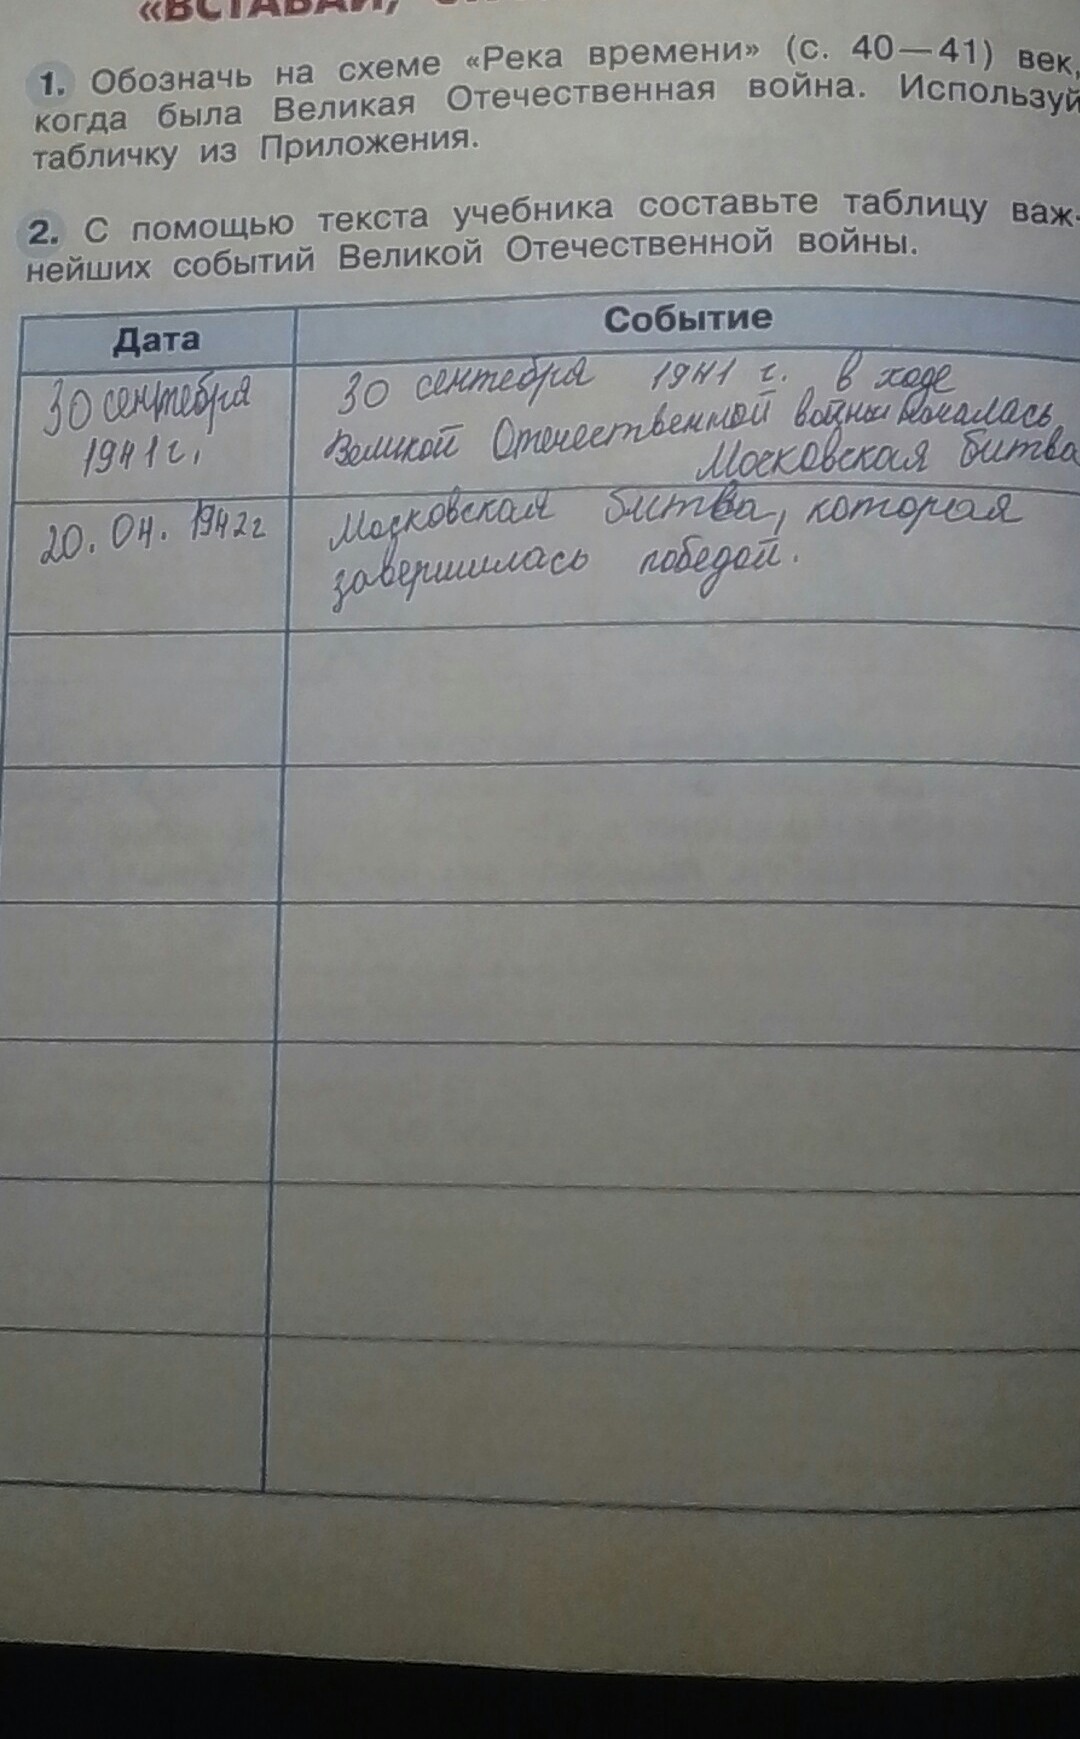 «ВСТАВАЙ,
1. Обозначь на схеме «Река времени» (с. 40—41) век,
когда была Великая Отечественная война. Используй
табличку из Приложения.
2. С помощью текста учебника составьте таблицу важ-
нейших событий Великой Отечественной войны.
Дата
Событие
30 сентября
1941г.
30 сентебря 1941 г. в ходе
Великой Отечественной войны началась
Московская битва
20. 04. 1942г
Московская битва, которая
завершилась победой.